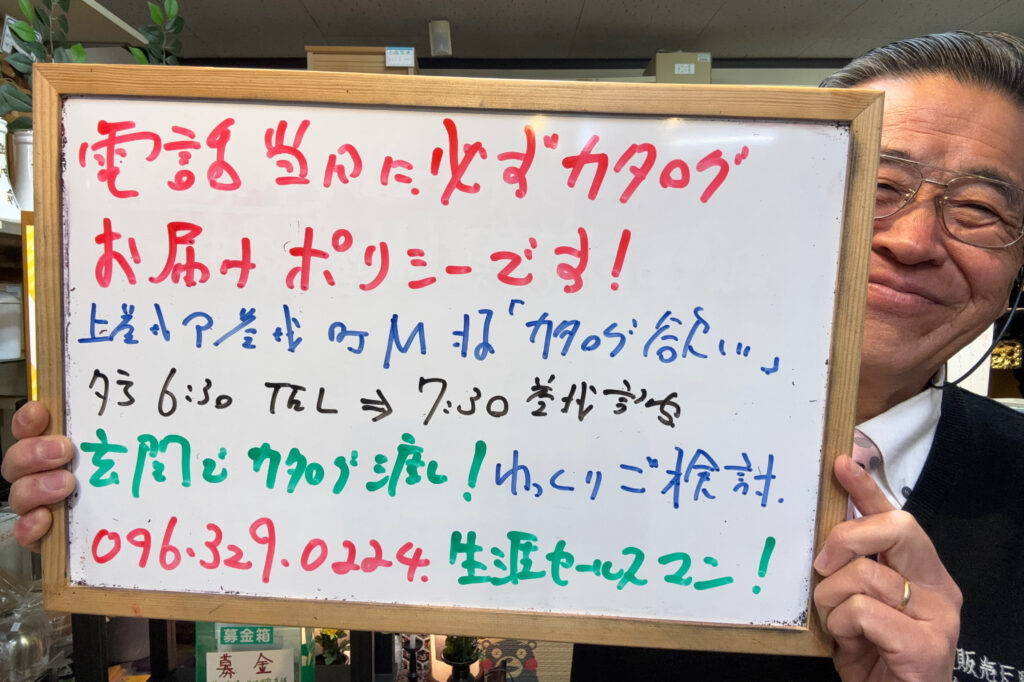 電話当日に必ずカタログ
お届けポリシーです!
上益城 益城町M様「カタログ欲しい」
夕方 6:30 TEL ⇒ 7:30 益城
玄関でカタログ渡し!ゆっくりご検討.
096.329.0224. 生涯セールスマン!
募金箱
募金
販売